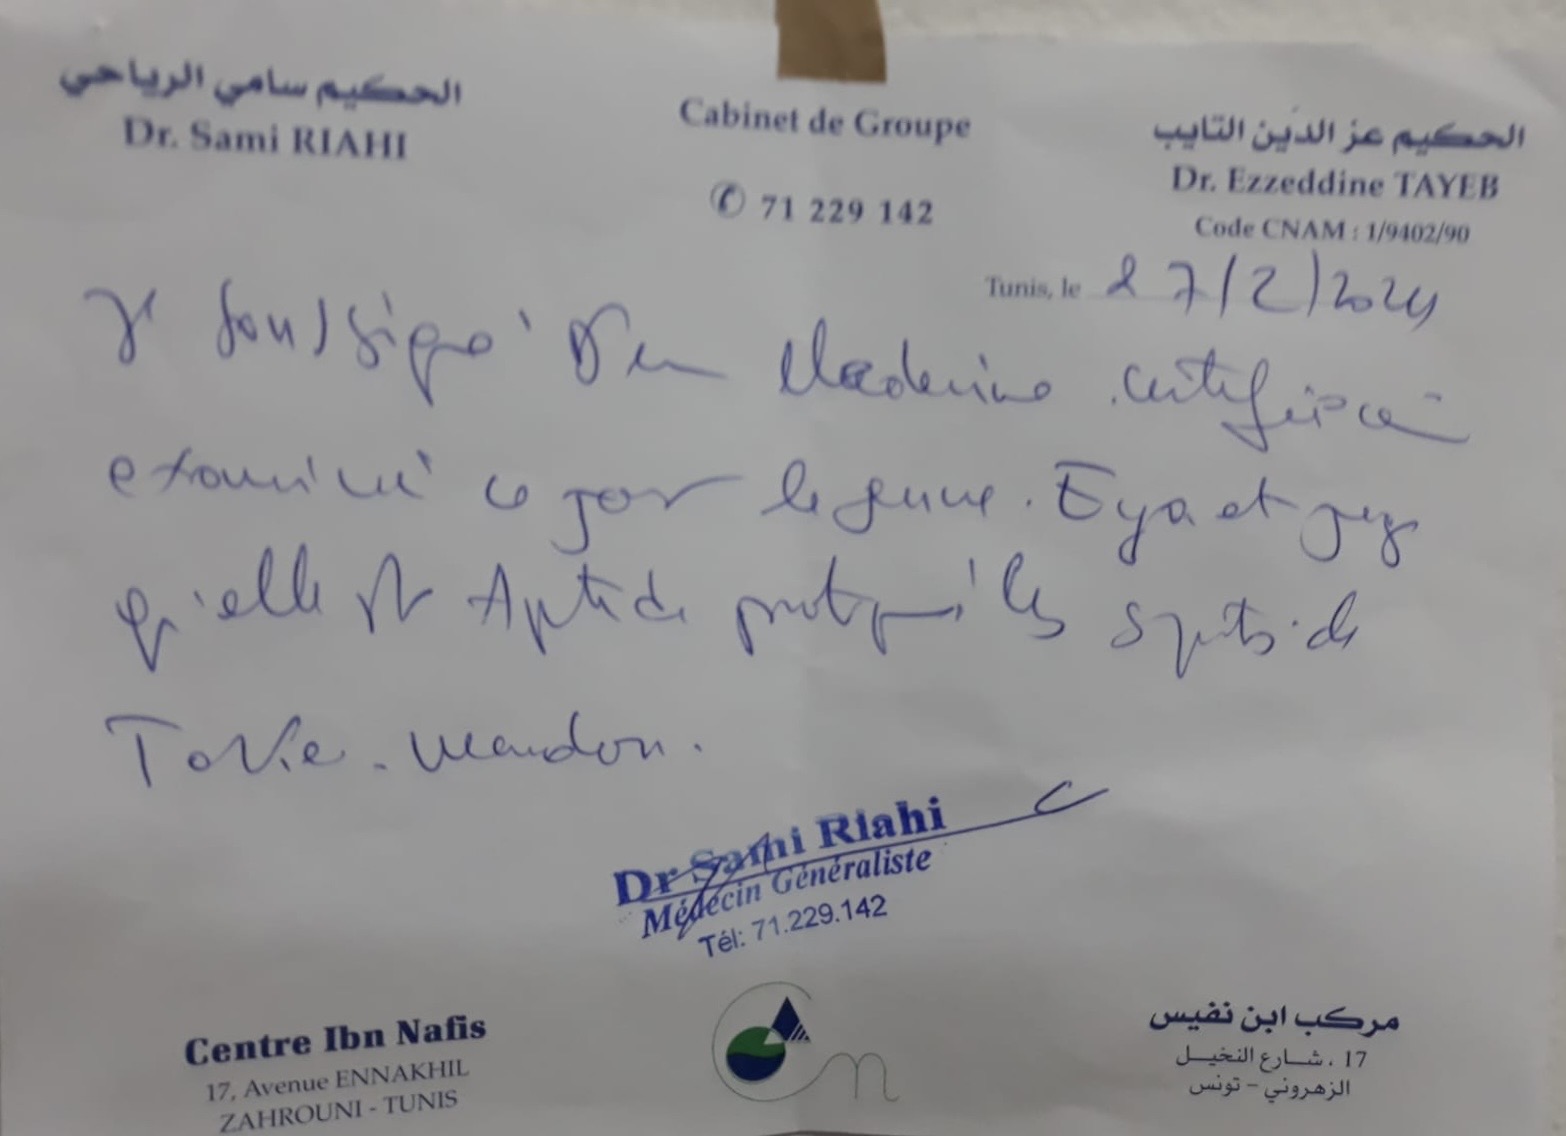 الحكيم سامي الرياحي
Dr. Sami RIAHI
Cabinet de Groupe
✆ 71 229 142
الحكيم عز الدين التايب
Dr. Ezzeddine TAYEB
Code CNAM : 1/9402/90
Tunis, le 27/2/2024
Je soussigné Dr en Medecine certifie
examiné ce jour le jeune. Eya et juge
qu'elle est Apte de pratiquer les sports de
Dr Sami Riahi
Médecin Généraliste
Tél: 71.229.142
Centre Ibn Nafis
17, Avenue ENNAKHIL
ZAHROUNI - TUNIS
مركب ابن نفيس
17 ، شارع النخيل
الزهروني - تونس